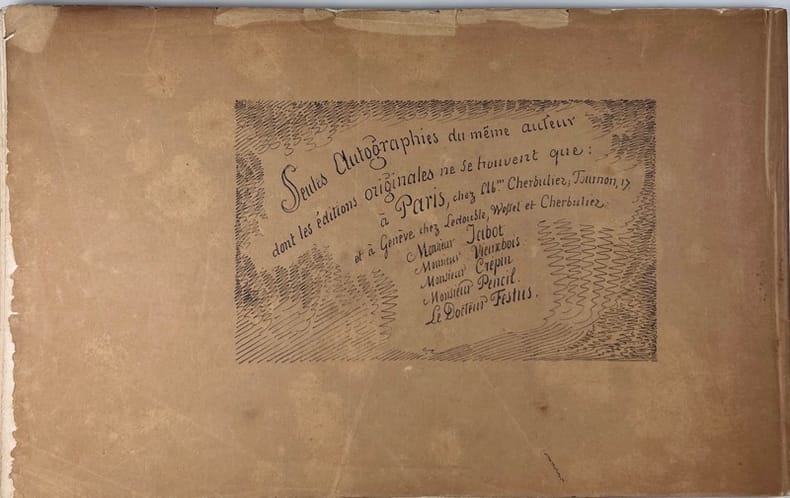 Seules Autographies du même auteur
dont les éditions originales ne se trouvent que :
à Paris, chez Ab.m Cherbuliez, Tournon, 17
et à Genève chez Ledouble, Wessel et Cherbuliez.
Monsieur Jabot
Monsieur Vieuxbois
Monsieur Crépin
Monsieur Pencil.
Le Docteur Festus.